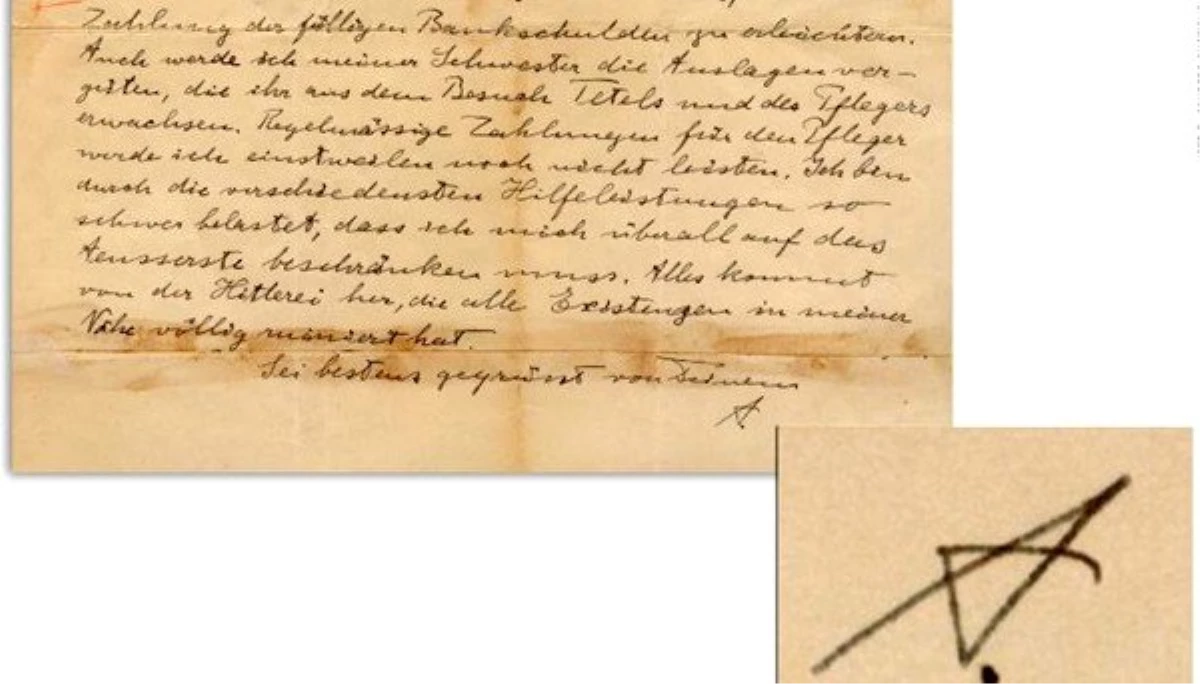 Zahlung der fälligen Bankschulden zu erleichtern.
Auch werde ich meiner Schwester die Auslagen ver-
güten, die ihr aus dem Besuch Tetels und des Pflegers
erwachsen. Regelmässige Zahlungen für den Pfleger
werde ich einstweilen noch nicht leisten. Ich bin
durch die verschiedensten Hilfeleistungen so
schwer belastet, dass ich mich überall auf das
Aeusserste beschränken muss. Alles kommt
von der Hitlerei her, die alle Existenzen in meiner
Nähe völlig ruiniert hat.
Sei bestens gegrüsst von Deinem
A.
A.